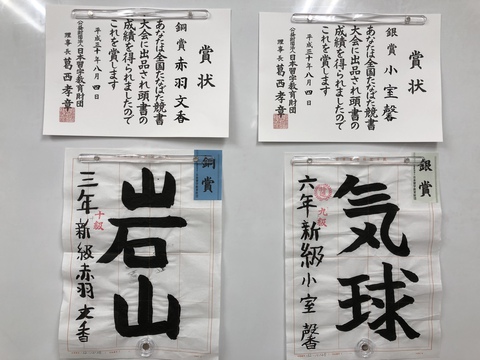 賞状
銅賞 赤羽文香
あなたは全国たなばた競書
大会に出品され頭書の
成績を得られましたので
これを賞します
平成三十年八月四日
公益財団法人日本習字教育財団
理事長 葛西孝章
賞状
銀賞 小室馨
あなたは全国たなばた競書
大会に出品され頭書の
成績を得られましたので
これを賞します
平成三十年八月四日
公益財団法人日本習字教育財団
理事長 葛西孝章
銅賞
岩山
十級
三年 新級 赤羽文香
銀賞
気球
九級
六年 新級 小室馨